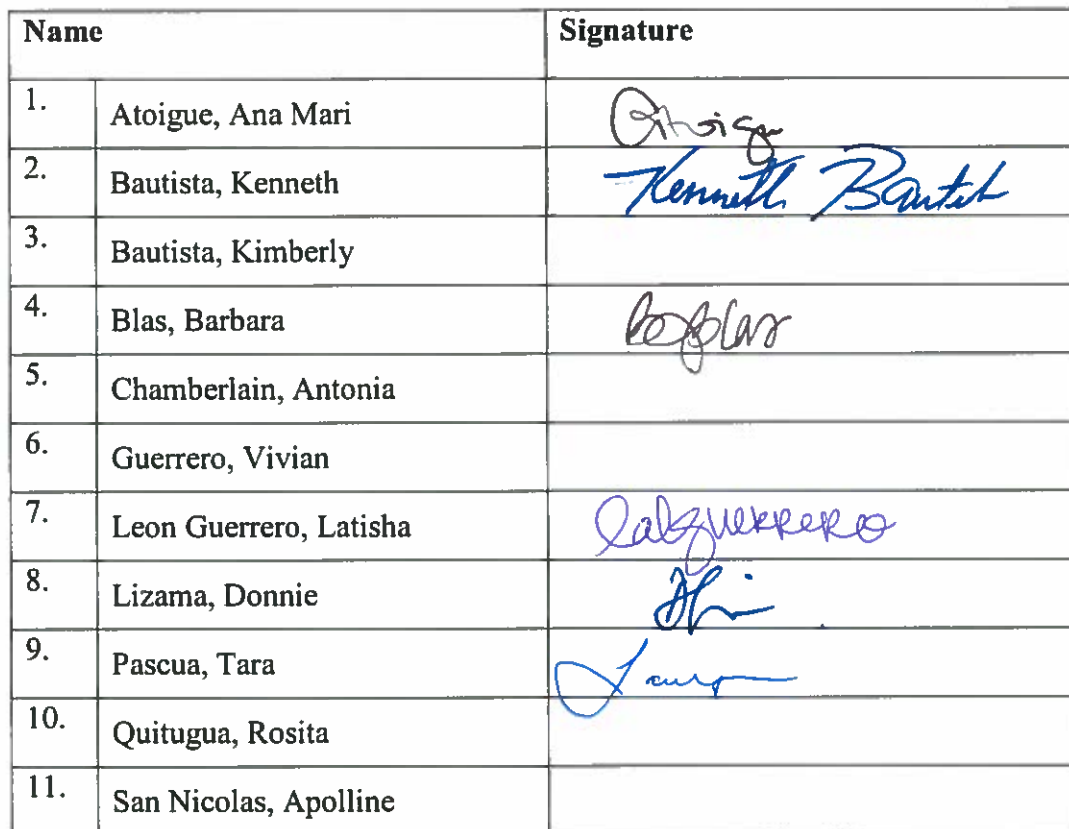 Name Signature
1. Atoigue, Ana Mari
2. Bautista, Kenneth Kenneth Bautist
3. Bautista, Kimberly
4. Blas, Barbara
5. Chamberlain, Antonia
6. Guerrero, Vivian
7. Leon Guerrero, Latisha
8. Lizama, Donnie
9. Pascua, Tara
10. Quitugua, Rosita
11. San Nicolas, Apolline